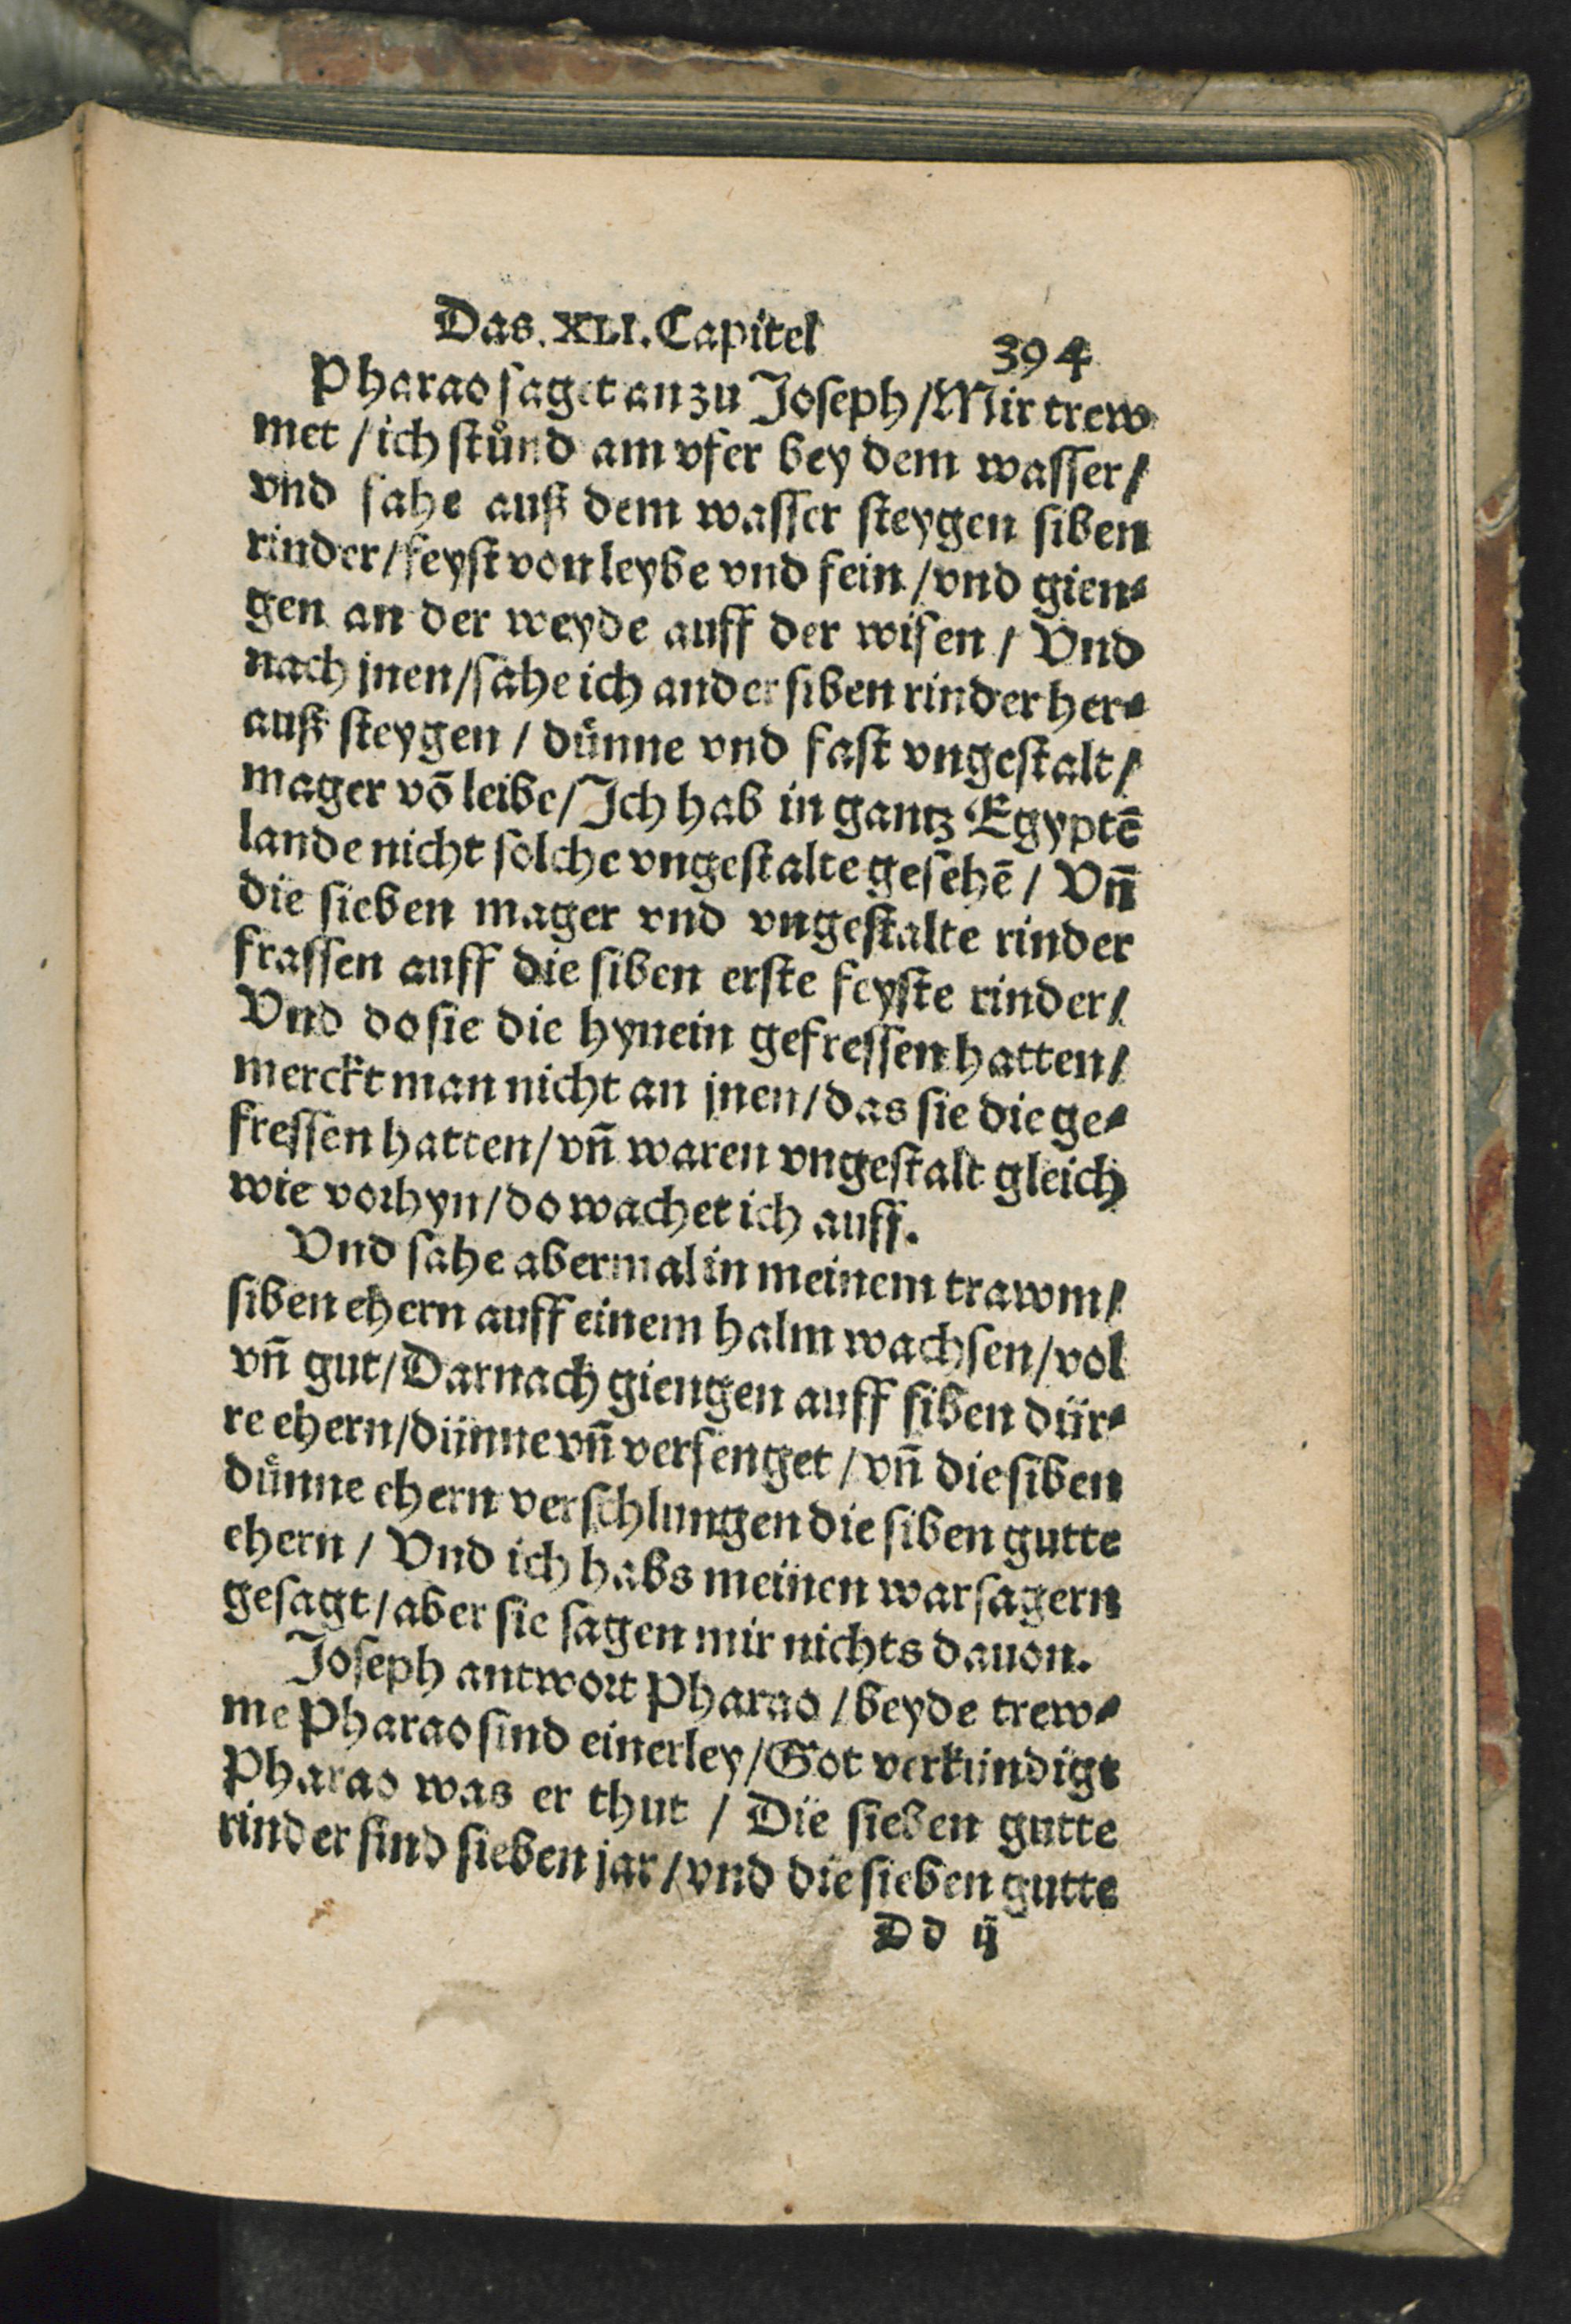 Das. XLI. Capitel 394
Pharao saget an zu Joseph / Mir trew
met / ich stůnd am vfer bey dem wasser /
vnd sahe auß dem wasser steygen siben
rinder / feyst von leybe vnd fein / vnd gien⸗
gen an der weyde auff der wisen / Vnd
nach jnen / sahe ich ander siben rinder her⸗
auß steygen / dünne vnd fast vngestalt /
mager võ leibe / Ich hab in gantz Egyptẽ
lande nicht solche vngestalte gesehẽ / Vñ
die sieben mager vnd vngestalte rinder
frassen auff die siben erste feyste rinder /
Vnd do sie die hynein gefressen hatten /
merckt man nicht an jnen / das sie die ge⸗
fressen hatten / vñ waren vngestalt gleich
wie vorhyn / do wachet ich auff.
Vnd sahe abermal in meinem trawm /
siben ehern auff einem halm wachsen / vol
vñ gut / Darnach giengen auff siben dür⸗
re ehern / dünne vñ versenget / vñ die siben
dünne ehern verschlungen die siben gutte
ehern / Vnd ich habs meinen warsagern
gesagt / aber sie sagen mir nichts dauon.
Joseph antwort Pharao / beyde trew⸗
me Pharao sind einerley / Got verkündigt
Pharao was er thut / Die sieben gutte
rinder sind sieben jar / vnd die sieben gutte
Dd ij